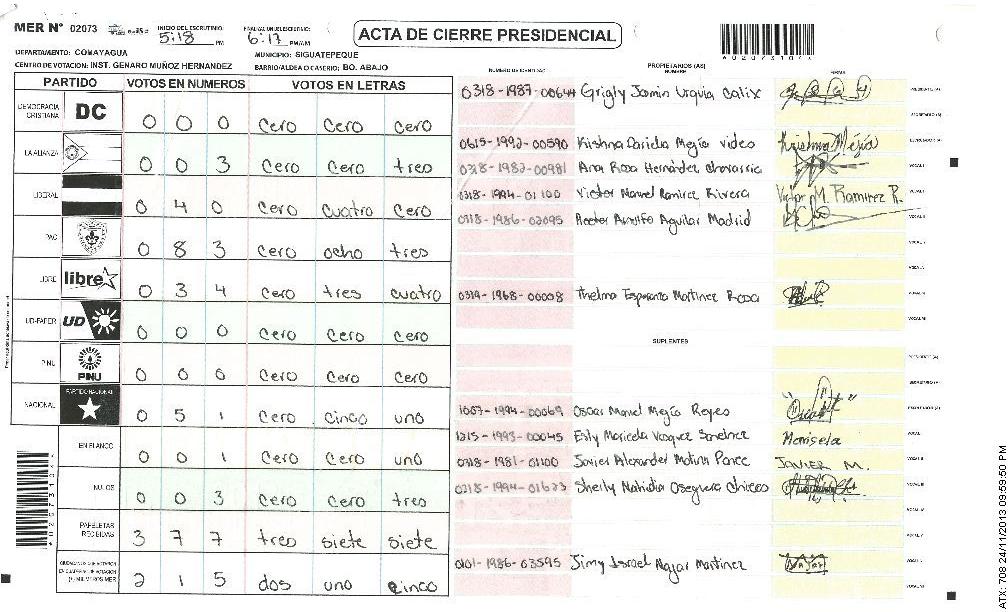 MER N° 02073
INICIO DEL ESCRUTINIO:
5:18 PM
FINALIZACION DEL ESCRUTINIO:
6:17 PM/AM
ACTA DE CIERRE PRESIDENCIAL
DEPARTAMENTO: COMAYAGUA
MUNICIPIO: SIGUATEPEQUE
CENTRO DE VOTACION: INST. GENARO MUÑOZ HERNANDEZ
BARRIO/ALDEA O CASERIO: BO. ABAJO
PARTIDO VOTOS EN NUMEROS VOTOS EN LETRAS
DEMOCRACIA CRISTIANA DC 0 0 0 cero cero cero
LA ALIANZA 0 0 3 cero cero tres
LIBERAL 0 4 0 cero cuatro cero
PAC 0 8 3 cero ocho tres
LIBRE libre 0 3 4 cero tres cuatro
UD-FAPER UD 0 0 0 cero cero cero
PINU PINU 0 0 0 cero cero cero
NACIONAL PARTIDO NACIONAL 0 5 1 cero cinco uno
EN BLANCO 0 0 1 cero cero uno
NULOS 0 0 3 cero cero tres
PAPELETAS RECIBIDAS 3 7 7 tres siete siete
2 1 5 dos uno cinco
NUMERO DE IDENTIDAD PROPIETARIOS (AS) NOMBRE FIRMA
0318-1987-00644 PRESIDENTE (A)
SECRETARIO (A)
0615-1992-00590 Krishna Mejía ESCRUTADOR (A)
0318-1982-00981 Ana Rosa Hernández VOCAL I
0318-1994-01100 Victor Manuel Ramirez Rivera Victor M. Ramirez R.
Aguilar Madrid
0319-1968-00008 Thelma Esperanza Martinez Rosa
SUPLENTES
PRESIDENTE (A)
SECRETARIO (A)
1007-1994-00069 Oscar Manuel Mejía Reyes ESCRUTADOR (A)
1215-1993-00045 Maricela Vasquez Sanchez Marisela
0318-1981-01100 Javier Alexander Molina Ponce JAVIER M.
0318-1994-01623 Oseguera
0101-1986-03595 Jimy Israel Najar Martinez Najar
A020731047
ATX: 708 24/11/2013 09:59:50 PM